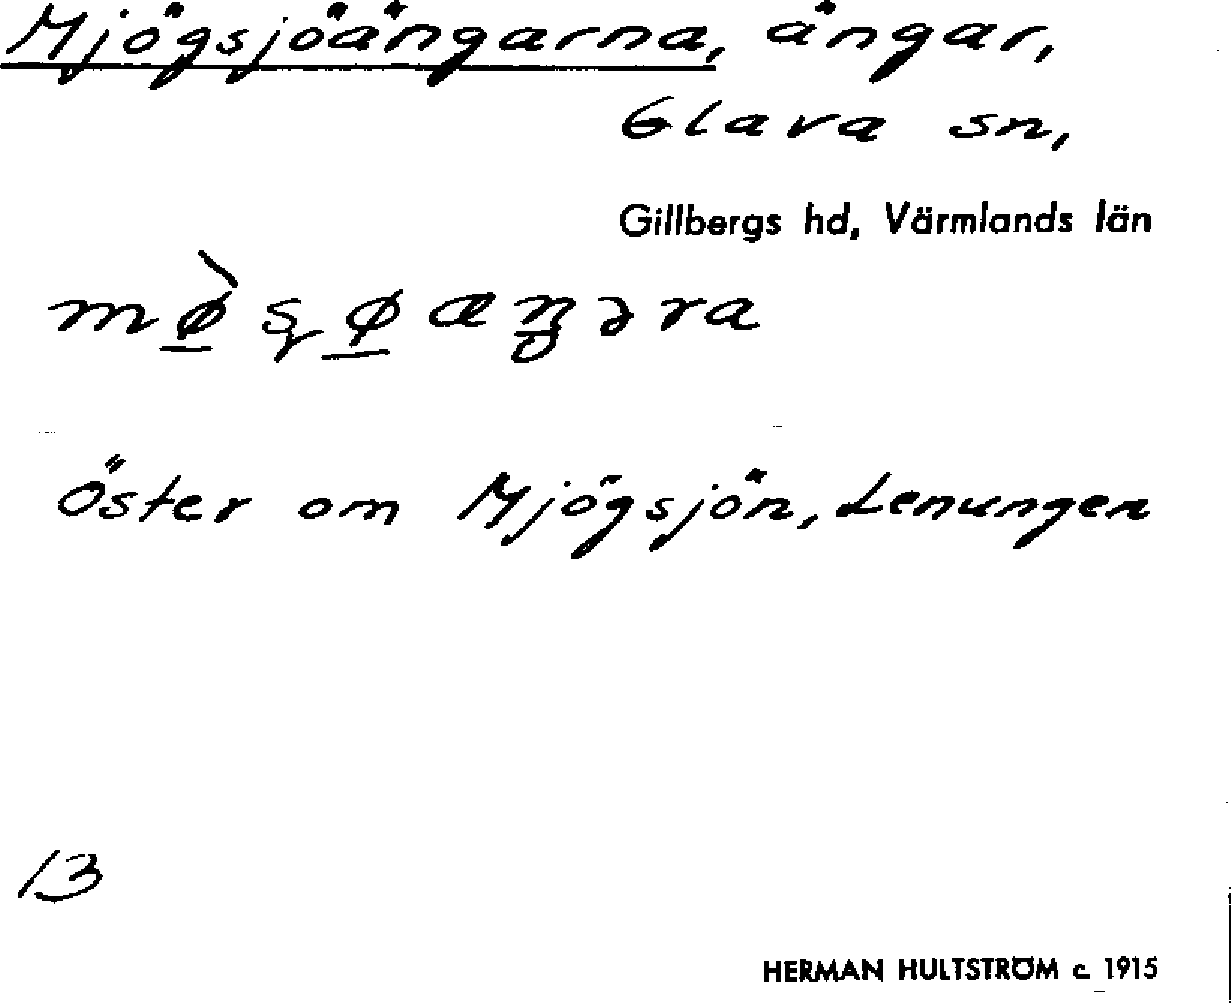 Mjögsjöängarna, ängar,
Glava sn,
Gillbergs hd, Värmlands län
Öster om Mjögsjön, Lenungen
13
HERMAN HULTSTRÖM c. 1915